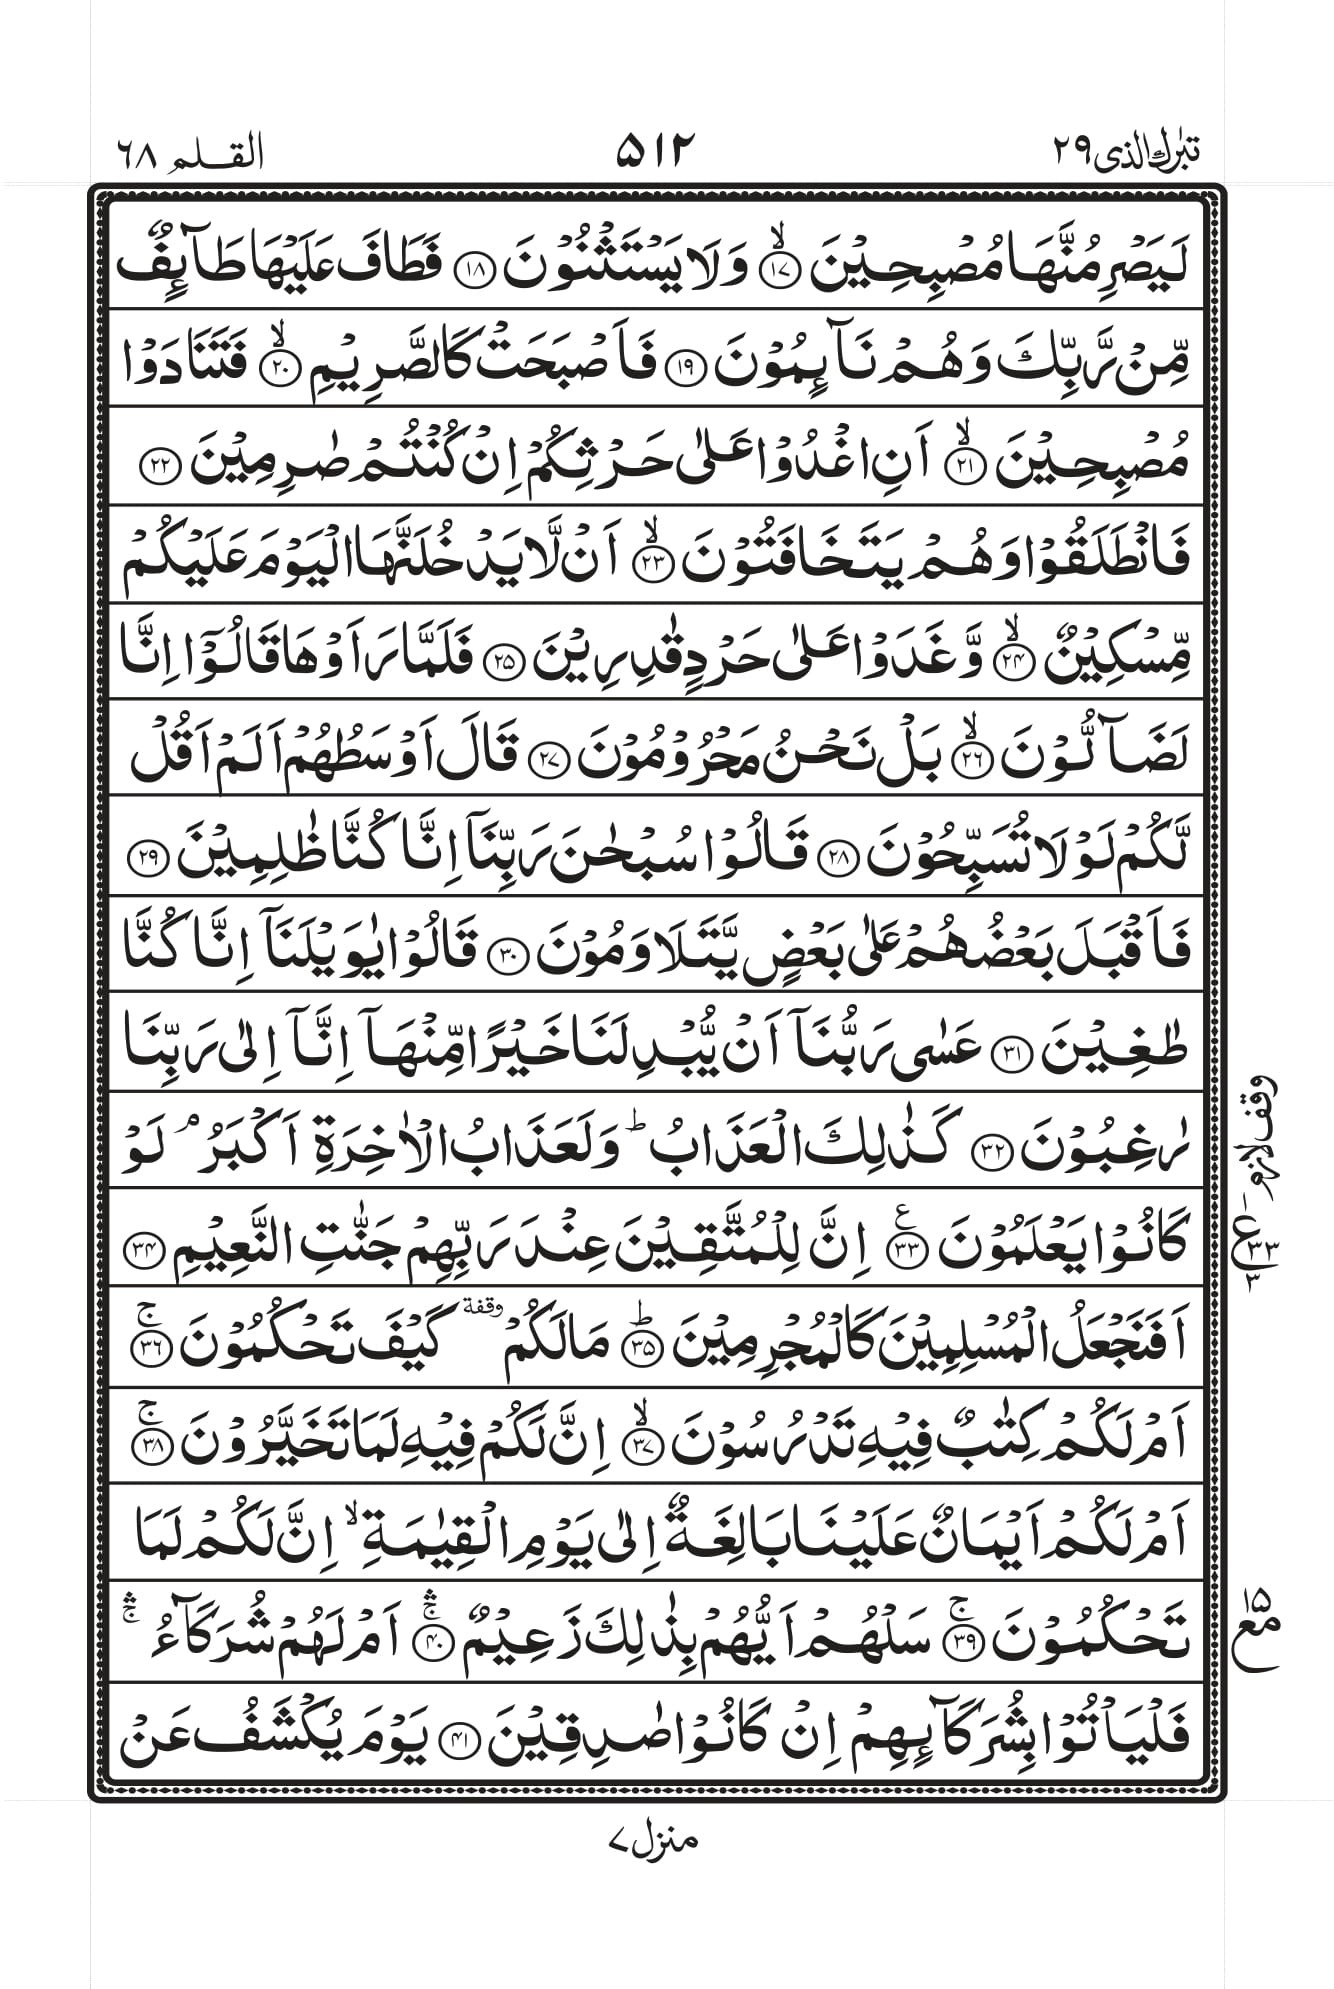 تبٰرك الذی ۲۹
۵۱۲
القلم ۶۸
لَيَصْرِمُنَّهَا مُصْبِحِيْنَ ۙ‏﴿۱۷﴾ وَلَا يَسْتَثْنُوْنَ ﴿۱۸﴾ فَطَافَ عَلَيْهَا طَآئِفٌ
مِّنْ رَّبِّكَ وَهُمْ نَآئِمُوْنَ ﴿۱۹﴾ فَاَصْبَحَتْ كَالصَّرِيْمِ ۙ‏﴿۲۰﴾ فَتَنَادَوْا
مُصْبِحِيْنَ ۙ‏﴿۲۱﴾ اَنِ اغْدُوْا عَلٰى حَرْثِكُمْ اِنْ كُنْتُمْ صٰرِمِيْنَ ﴿۲۲﴾
فَانْطَلَقُوْا وَهُمْ يَتَخَافَتُوْنَ ۙ‏﴿۲۳﴾ اَنْ لَّا يَدْخُلَنَّهَا الْيَوْمَ عَلَيْكُمْ
مِّسْكِيْنٌ ۙ‏﴿۲۴﴾ وَّغَدَوْا عَلٰى حَرْدٍ قٰدِرِيْنَ ﴿۲۵﴾ فَلَمَّا رَاَوْهَا قَالُوْۤا اِنَّا
لَضَآلُّوْنَ ۙ‏﴿۲۶﴾ بَلْ نَحْنُ مَحْرُوْمُوْنَ ﴿۲۷﴾ قَالَ اَوْسَطُهُمْ اَلَمْ اَقُلْ
لَّكُمْ لَوْلَا تُسَبِّحُوْنَ ﴿۲۸﴾ قَالُوْا سُبْحٰنَ رَبِّنَاۤ اِنَّا كُنَّا ظٰلِمِيْنَ ﴿۲۹﴾
فَاَقْبَلَ بَعْضُهُمْ عَلٰى بَعْضٍ يَّتَلَاوَمُوْنَ ﴿۳۰﴾ قَالُوْا يٰوَيْلَنَاۤ اِنَّا كُنَّا
طٰغِيْنَ ﴿۳۱﴾ عَسٰى رَبُّنَاۤ اَنْ يُّبْدِلَنَا خَيْرًا مِّنْهَاۤ اِنَّاۤ اِلٰى رَبِّنَا
رٰغِبُوْنَ ﴿۳۲﴾ كَذٰلِكَ الْعَذَابُ ؕ وَلَعَذَابُ الْاٰخِرَةِ اَكْبَرُ ۘ لَوْ
كَانُوْا يَعْلَمُوْنَ ﴿۳۳﴾ ع اِنَّ لِلْمُتَّقِيْنَ عِنْدَ رَبِّهِمْ جَنّٰتِ النَّعِيْمِ ﴿۳۴﴾
اَفَنَجْعَلُ الْمُسْلِمِيْنَ كَالْمُجْرِمِيْنَ ؕ‏﴿۳۵﴾ مَا لَكُمْ وقفة كَيْفَ تَحْكُمُوْنَ ۚ‏﴿۳۶﴾
اَمْ لَكُمْ كِتٰبٌ فِيْهِ تَدْرُسُوْنَ ۙ‏﴿۳۷﴾ اِنَّ لَكُمْ فِيْهِ لَمَا تَخَيَّرُوْنَ ۚ‏﴿۳۸﴾
اَمْ لَكُمْ اَيْمَانٌ عَلَيْنَا بَالِغَةٌ اِلٰى يَوْمِ الْقِيٰمَةِ ۙ اِنَّ لَكُمْ لَمَا
تَحْكُمُوْنَ ۚ‏﴿۳۹﴾ سَلْهُمْ اَيُّهُمْ بِذٰلِكَ زَعِيْمٌ ۛۚ‏﴿۴۰﴾ اَمْ لَهُمْ شُرَكَآءُ ۛۚ
فَلْيَاْتُوْا بِشُرَكَآئِهِمْ اِنْ كَانُوْا صٰدِقِيْنَ ﴿۴۱﴾ يَوْمَ يُكْشَفُ عَنْ
وقف لازم
۱
ع
۳۳
۳
۱۵
مع
منزل ۷